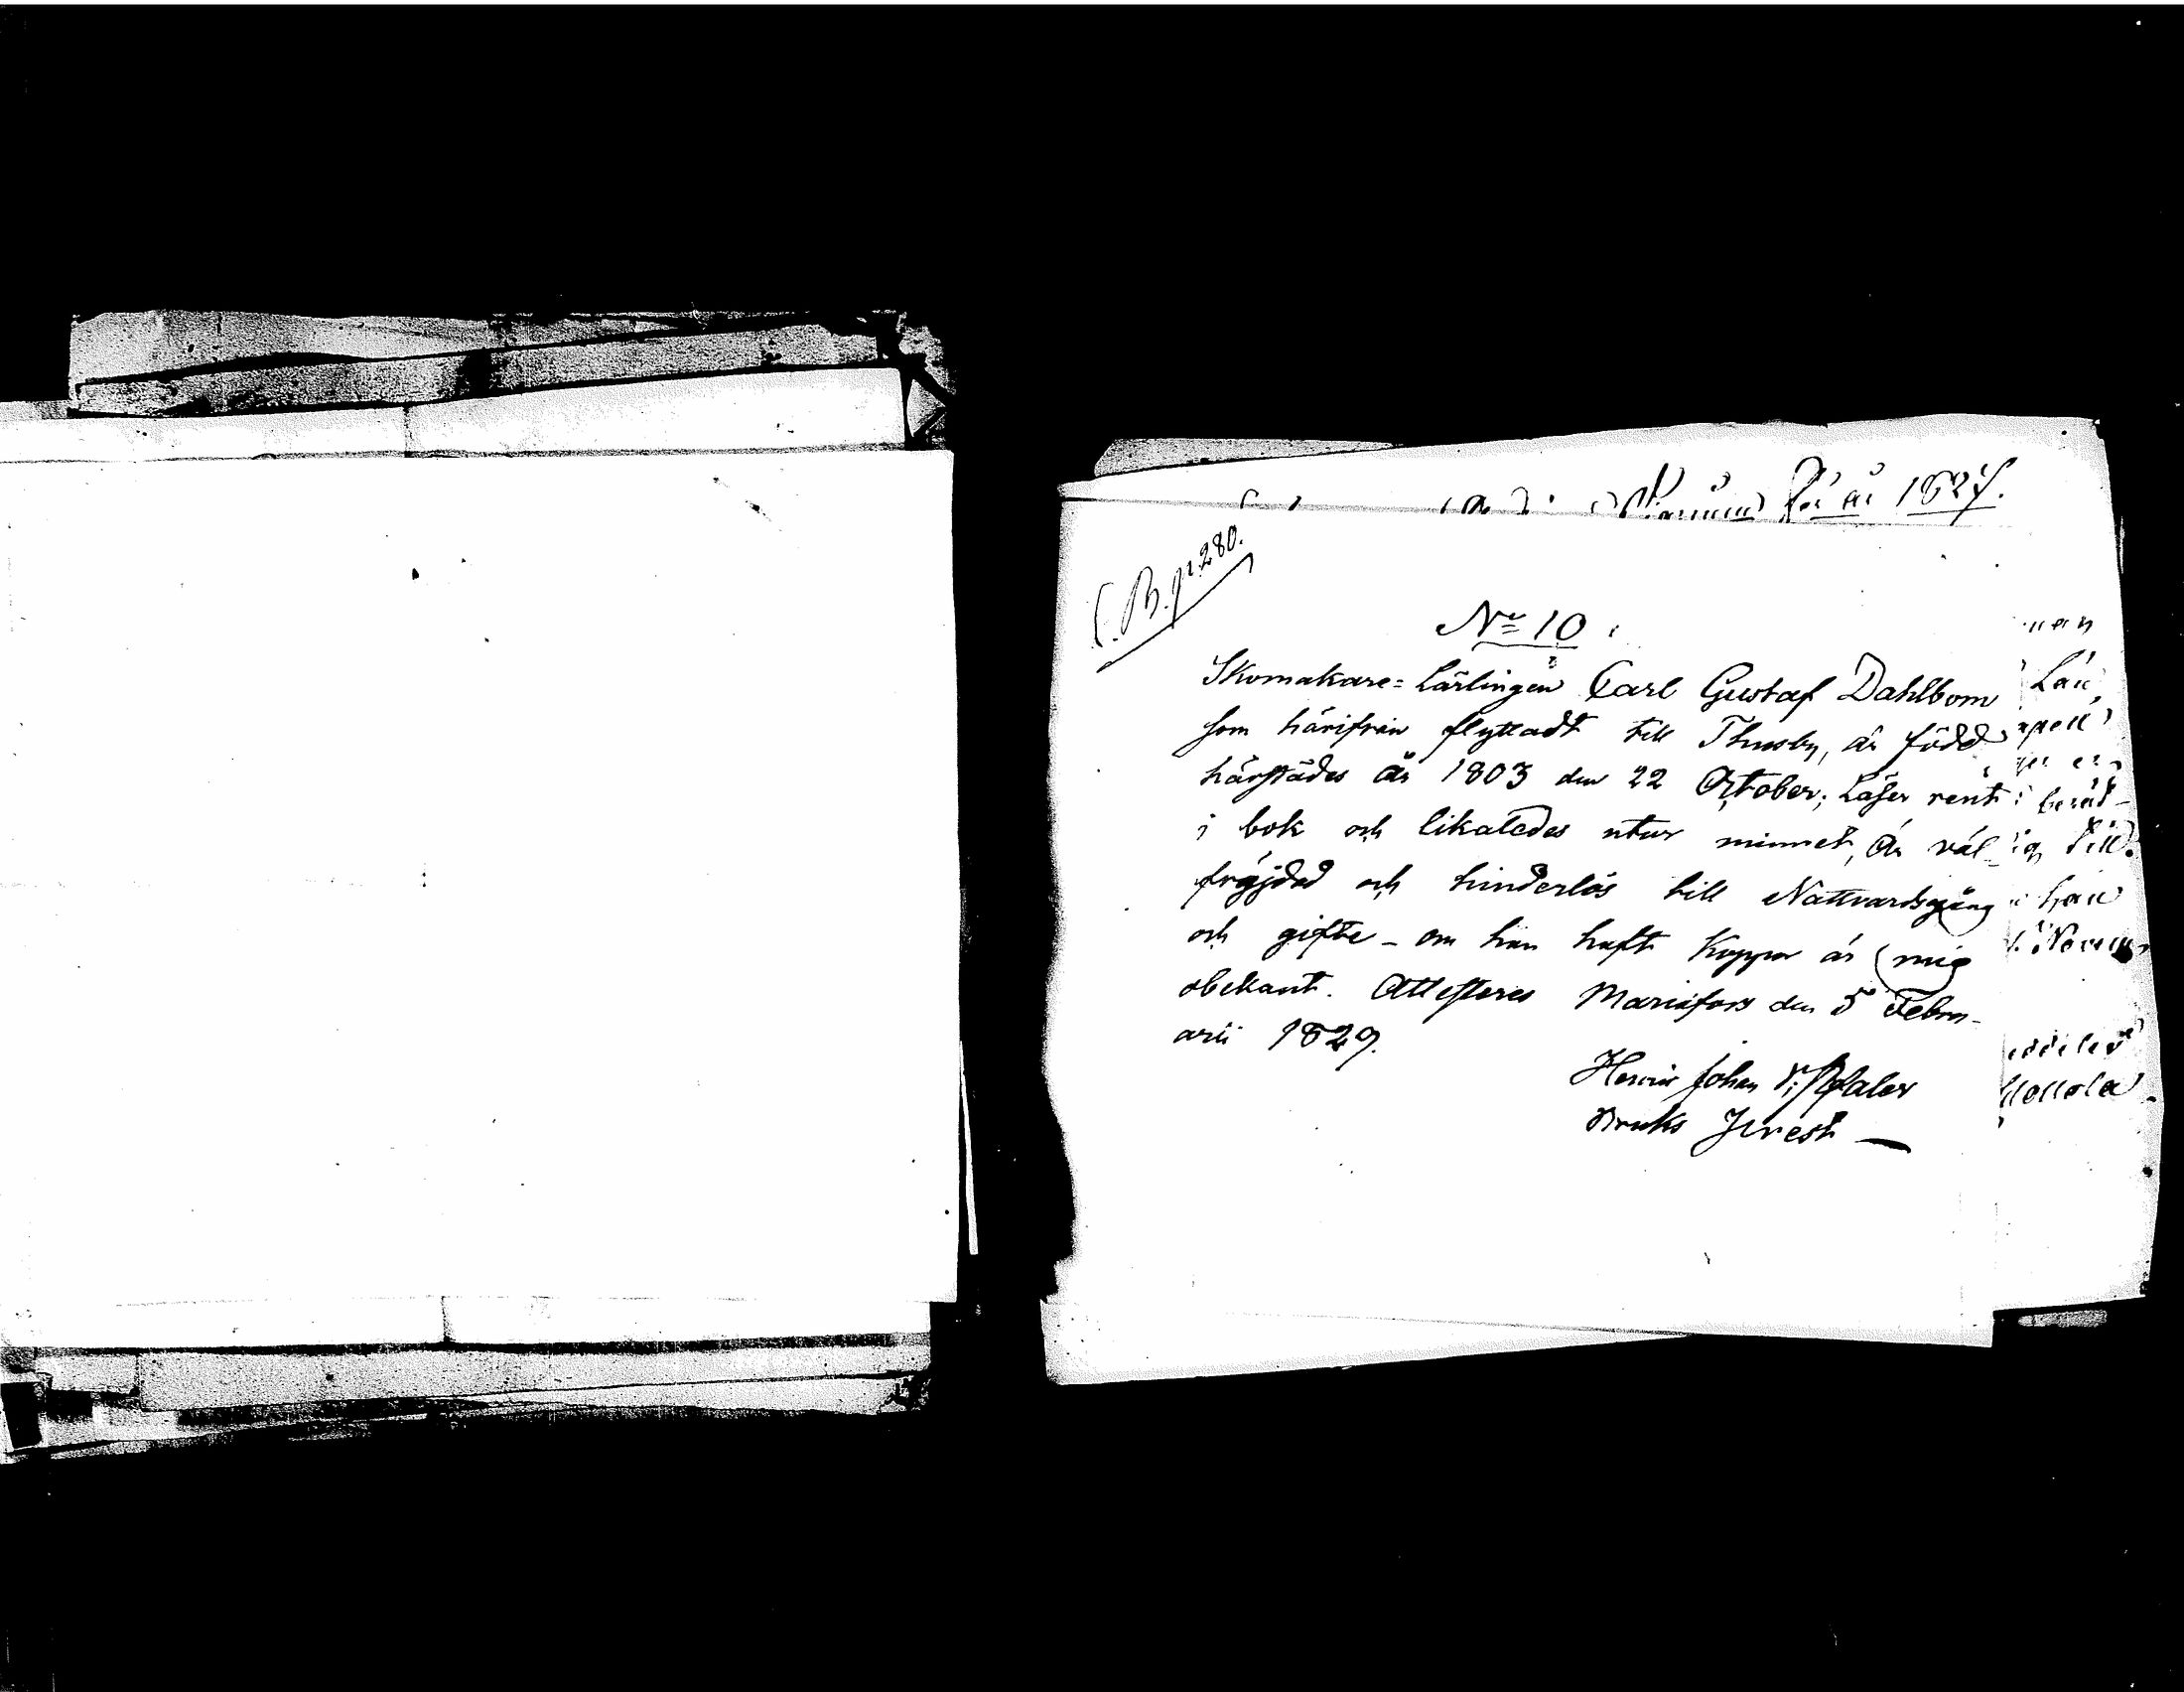 för år 1827.
C.B. p. 280.
No 10.
Skomakare=Lärlingen Carl Gustaf Dahlbom
som härifrån flyttadt till Thusby, är född
härstädes år 1803 den 22 October; Läser rent
i bok och likaledes utur minnet, är väl-
fräjdad och hinderlös till Nattvardsgång
och gifte - om han haft Koppor är mig
obekant. Attesteras Mariefors den 5 Febru-
arii 1829.
Henric Johan
Bruks